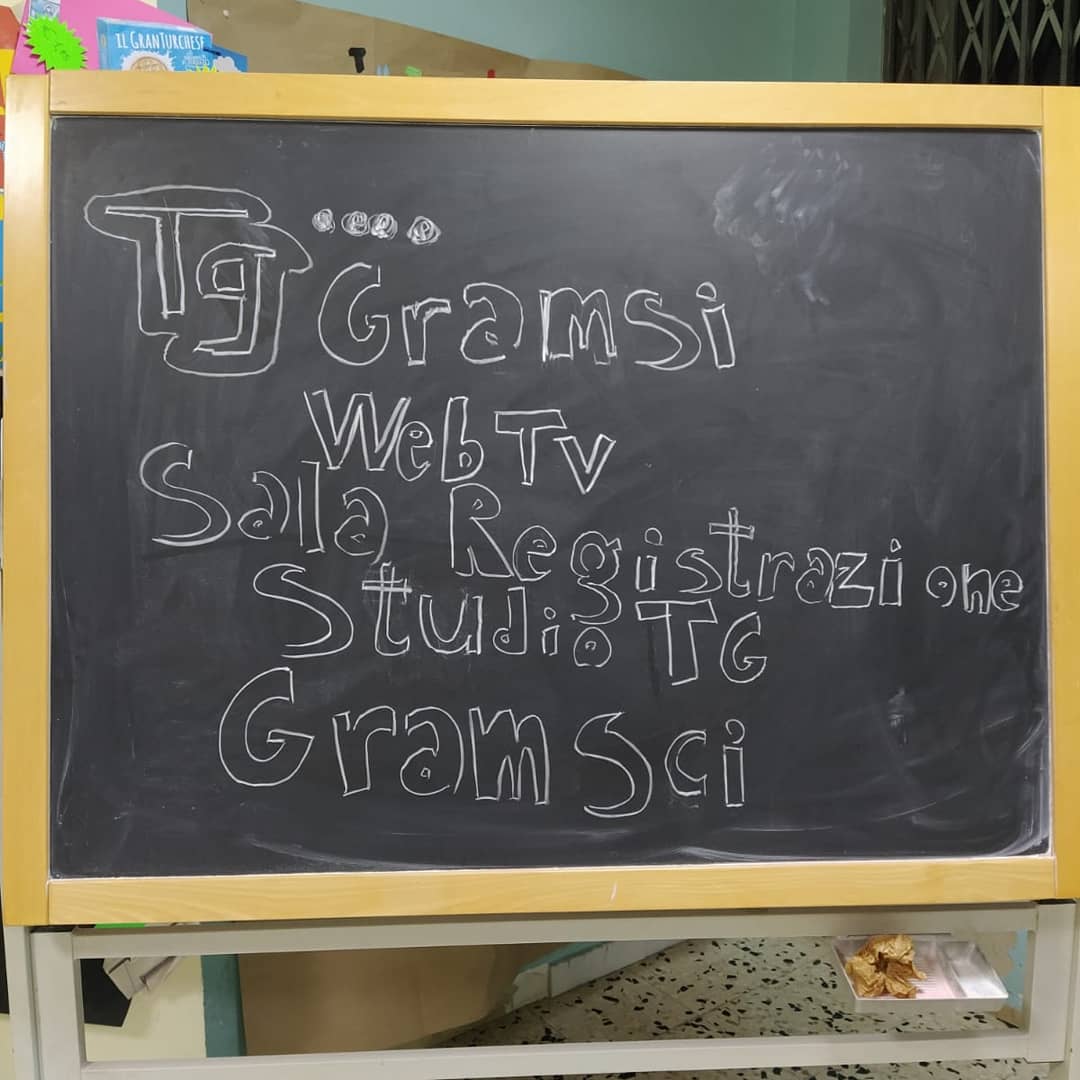 IL GRANTURCHESE
Tg
Gramsi
Web Tv
Sala Registrazione
Studio TG
Gramsci